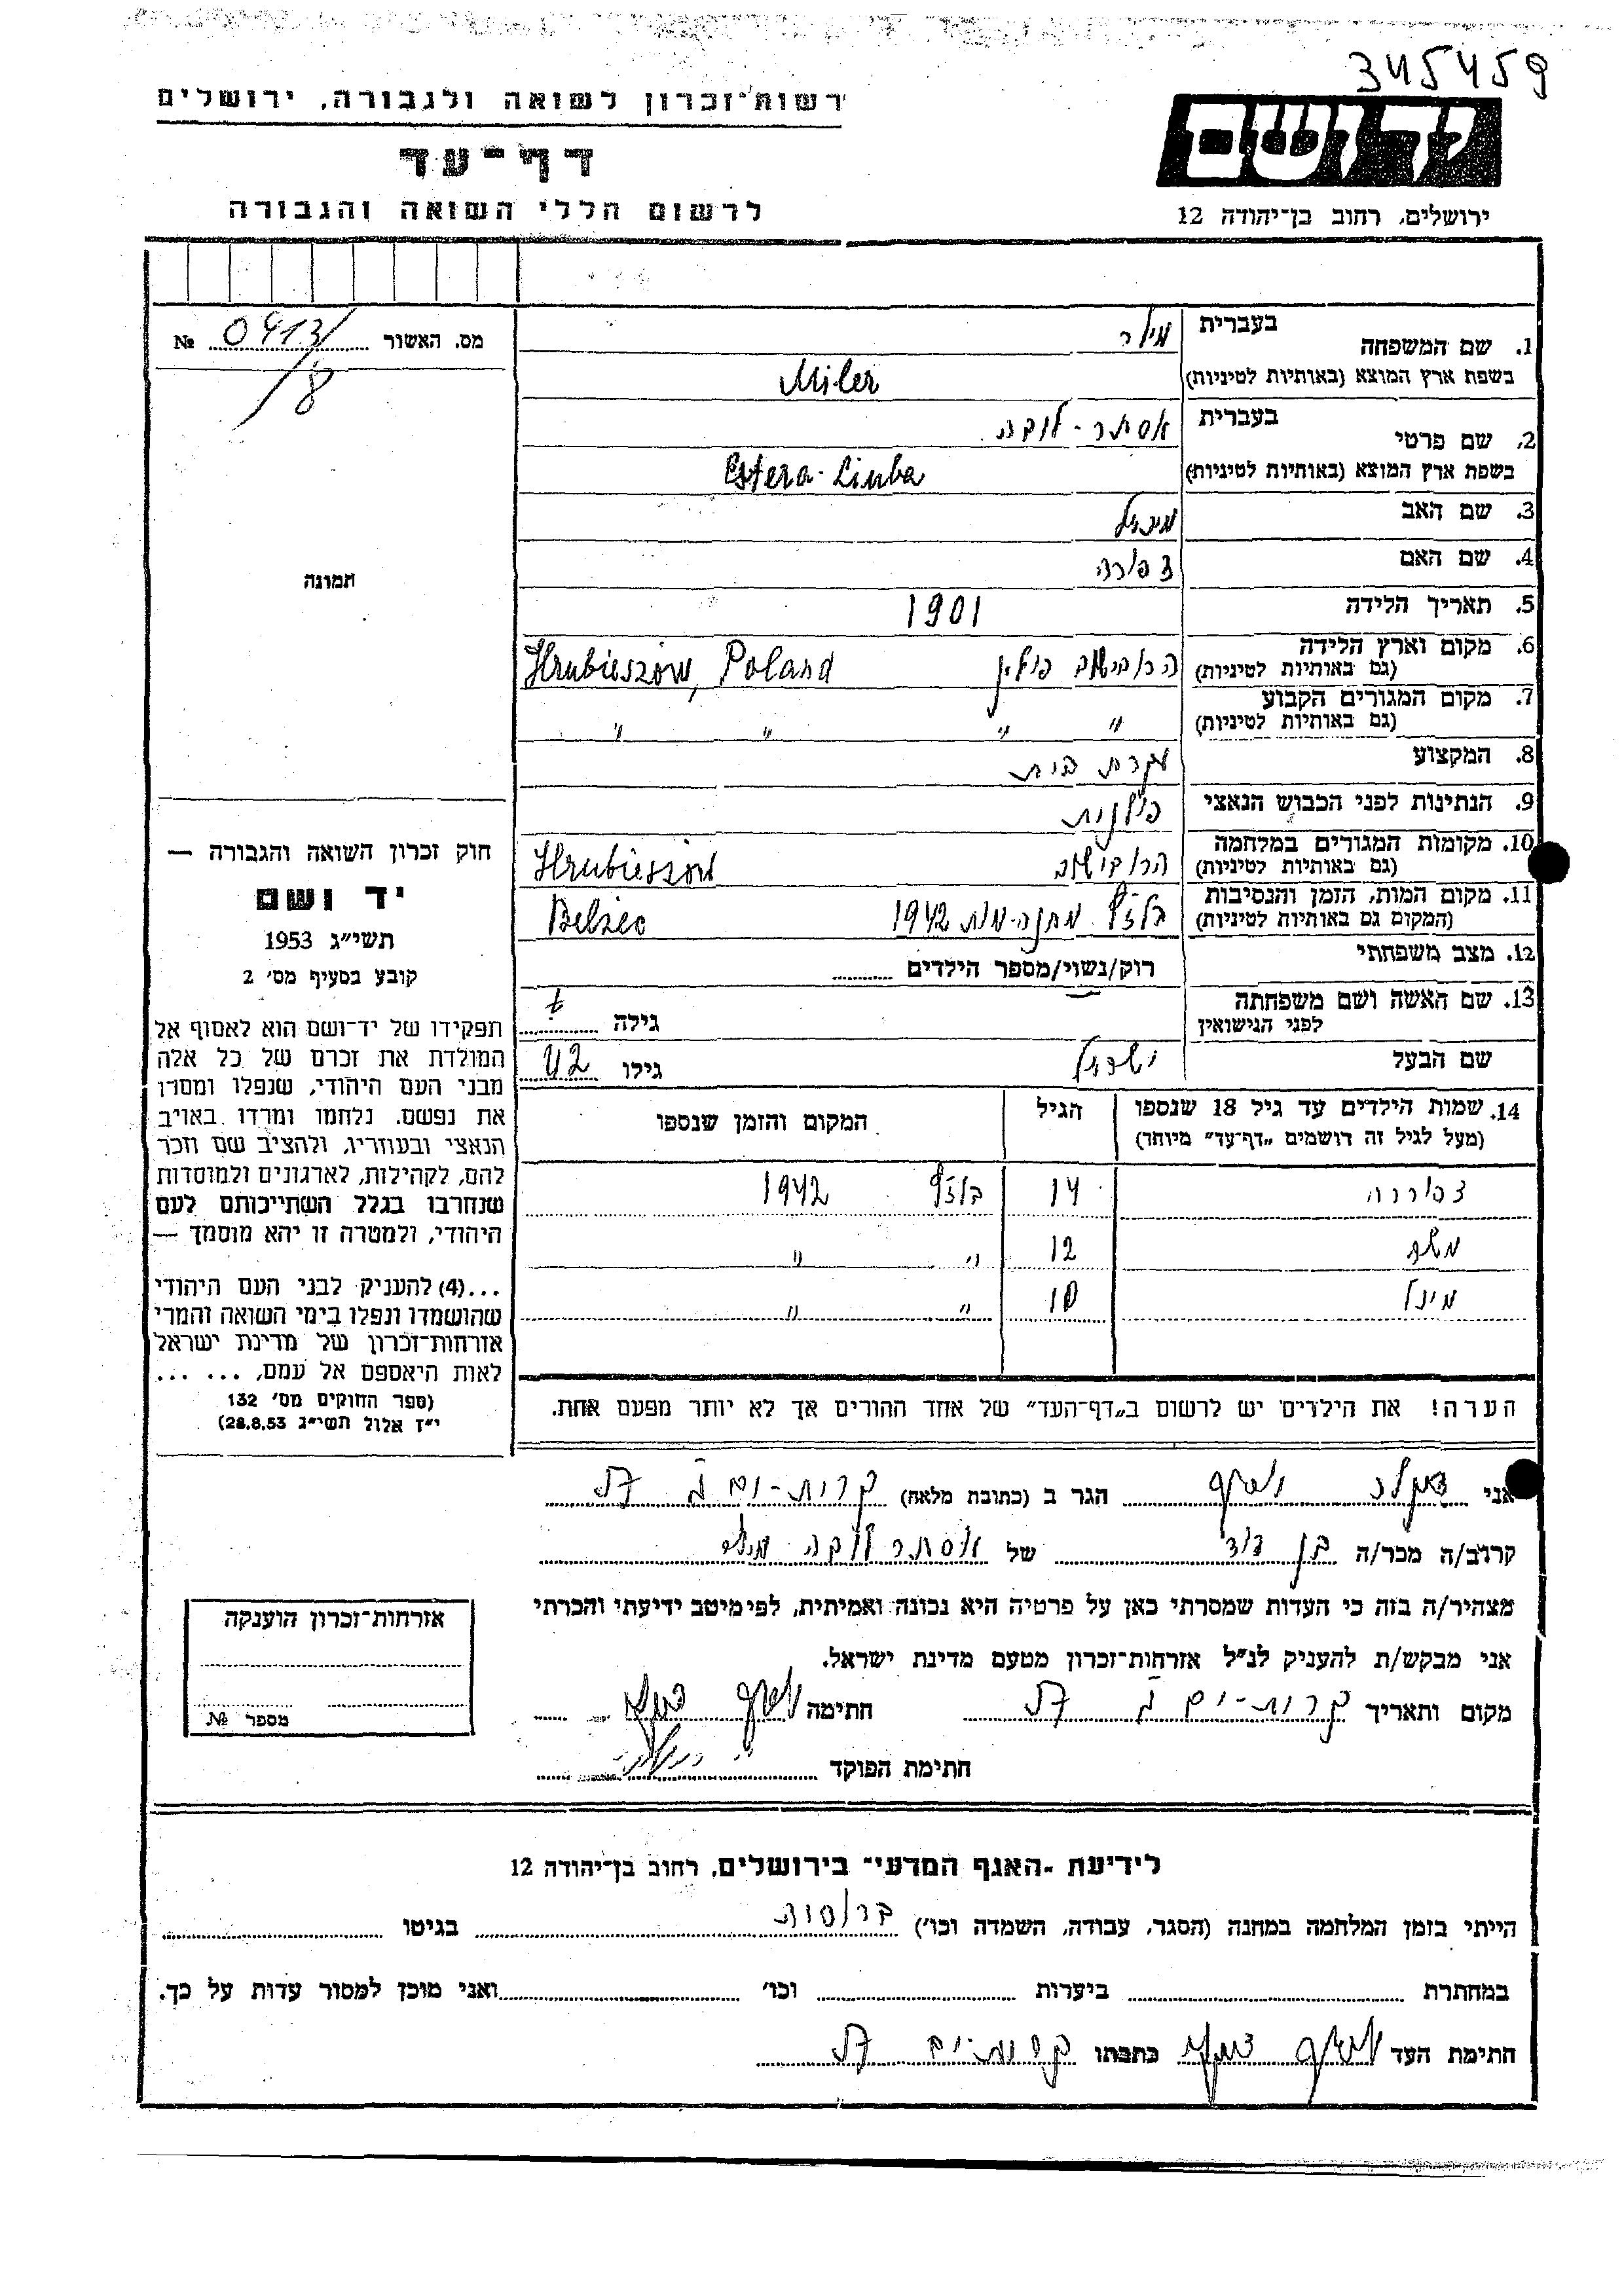 345459
רשות־זכרון לשואה ולגבורה, ירושלים
דף־עד
לרשום חללי השואה והגבורה
יד ושם
ירושלים, רחוב בן־יהודה 12
מס. האשור 0413/ №
/8
תמונה
1. שם המשפחה בעברית מילר
בשפת ארץ המוצא (באותיות לטיניות) Miler
2. שם פרטי בעברית אסתר-לובה
בשפת ארץ המוצא (באותיות לטיניות) Estera-Liuba
3. שם האב
4. שם האם צפורה
5. תאריך הלידה 1901
6. מקום וארץ הלידה הרובישוב פולין Hrubieszów, Poland
(גם באותיות לטיניות)
7. מקום המגורים הקבוע " " " "
(גם באותיות לטיניות)
8. המקצוע עקרת בית
9. הנתינות לפני הכבוש הנאצי פולנית
10. מקומות המגורים במלחמה הרובישוב Hrubieszów
(גם באותיות לטיניות)
11. מקום המות, הזמן והנסיבות בלז'ץ מחנה-מות 1942 Belzec
(המקום גם באותיות לטיניות)
12. מצב משפחתי רוק/נשוי/מספר הילדים
13. שם האשה ושם משפחתה
לפני הנישואין גילה
שם הבעל גילו 42
14. שמות הילדים עד גיל 18 שנספו הגיל המקום והזמן שנספו
(מעל לגיל זה רושמים „דף־עד" מיוחד)
צפורה 14 בלז'ץ 1942
משה 12 " "
10 " "
הערה! את הילדים יש לרשום ב„דף־העד" של אחד ההורים אך לא יותר מפעם אחת.
חוק זכרון השואה והגבורה —
יד ושם
תשי״ג 1953
קובע בסעיף מס׳ 2
תפקידו של יד־ושם הוא לאסוף אל
המולדת את זכרם של כל אלה
מבני העם היהודי, שנפלו ומסרו
את נפשם. נלחמו ומרדו באויב
הנאצי ובעוזריו, ולהציב שם וזכר
להם, לקהילות, לארגונים ולמוסדות
שנחרבו בגלל השתייכותם לעם
היהודי, ולמטרה זו יהא מוסמך —
...(4) להעניק לבני העם היהודי
שהושמדו ונפלו בימי השואה והמרי
אזרחות־זכרון של מדינת ישראל
לאות היאספם אל עמם, ... ...
(ספר החוקים מס׳ 132
י״ז אלול תשי״ג 28.8.53)
אני יוסף הגר ב (כתובת מלאה) קרית-ים ג'
קרוב/ה מכר/ה בן דוד של אסתר לובה מילר
מצהיר/ה בזה כי העדות שמסרתי כאן על פרטיה היא נכונה ואמיתית, לפי מיטב ידיעתי והכרתי
אני מבקש/ת להעניק לנ״ל אזרחות־זכרון מטעם מדינת ישראל.
מקום ותאריך קרית-ים ג' חתימה יוסף
חתימת הפוקד
אזרחות־זכרון הוענקה
מספר №
לידיעת -האגף המדעי־ בירושלים, רחוב בן־יהודה 12
הייתי בזמן המלחמה במחנה (הסגר, עבודה, השמדה וכו׳) ברוסיה בגיטו
במחתרת ביערות וכו׳ ואני מוכן למסור עדות על כך.
חתימת העד יוסף כתבתו קרית-ים